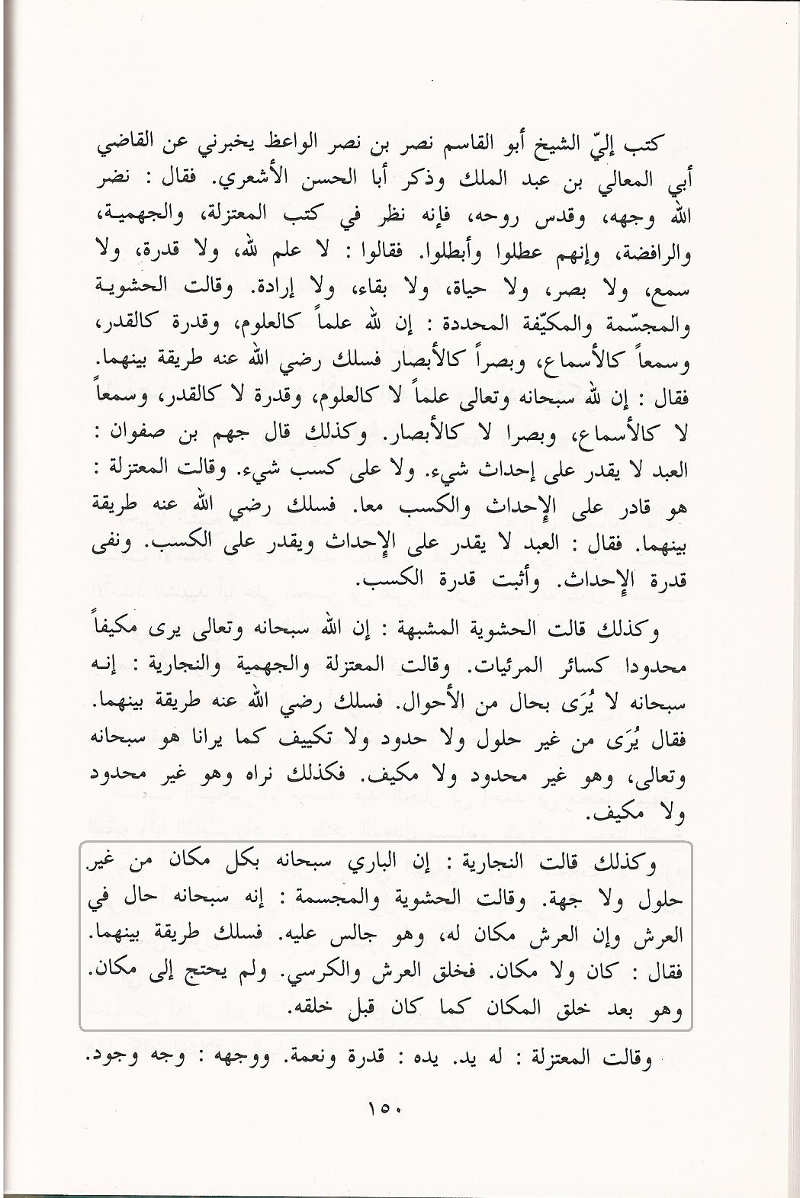 كتب إليّ الشيخ أبو القاسم نصر بن نصر الواعظ يخبرني عن القاضي
أبي المعالي بن عبد الملك وذكر أبا الحسن الأشعري. فقال : نضر
الله وجهه، وقدس روحه، فإنه نظر في كتب المعتزلة، والجهمية،
والرافضة، وإنهم عطلوا وأبطلوا. فقالوا : لا علم لله، ولا قدرة، ولا
سمع، ولا بصر، ولا حياة، ولا بقاء، ولا إرادة. وقالت الحشوية
والمجسّمة والمكيّفة المحددة : إن لله علماً كالعلوم، وقدرة كالقدر،
وسمعاً كالأسماع، وبصراً كالأبصار فسلك رضي الله عنه طريقة بينهما.
فقال : إن لله سبحانه وتعالى علماً لا كالعلوم، وقدرة لا كالقدر، وسمعاً
لا كالأسماع، وبصرا لا كالأبصار. وكذلك قال جهم بن صفوان :
العبد لا يقدر على إحداث شيء. ولا على كسب شيء. وقالت المعتزلة :
هو قادر على الإحداث والكسب معا. فسلك رضي الله عنه طريقة
بينهما. فقال : العبد لا يقدر على الإحداث ويقدر على الكسب. ونفى
قدرة الإحداث. وأثبت قدرة الكسب.
وكذلك قالت الحشوية المشبهة : إن الله سبحانه وتعالى يرى مكيفاً
محدودا كسائر المرئيات. وقالت المعتزلة والجهمية والنجارية : إنه
سبحانه لا يُرَى بحال من الأحوال. فسلك رضي الله عنه طريقة بينهما.
فقال يُرَى من غير حلول ولا حدود ولا تكييف كما يرانا هو سبحانه
وتعالى، وهو غير محدود ولا مكيف. فكذلك نراه وهو غير محدود
ولا مكيف.
وكذلك قالت النجارية : إن الباري سبحانه بكل مكان من غير
حلول ولا جهة. وقالت الحشوية والمجسمة : إنه سبحانه حال في
العرش وإن العرش مكان له، وهو جالس عليه. فسلك طريقة بينهما.
فقال : كان ولا مكان. فخلق العرش والكرسي. ولم يحتج إلى مكان.
وهو بعد خلق المكان كما كان قبل خلقه.
وقالت المعتزلة : له يد. يده : قدرة ونعمة. ووجهه : وجه وجود.
١٥٠